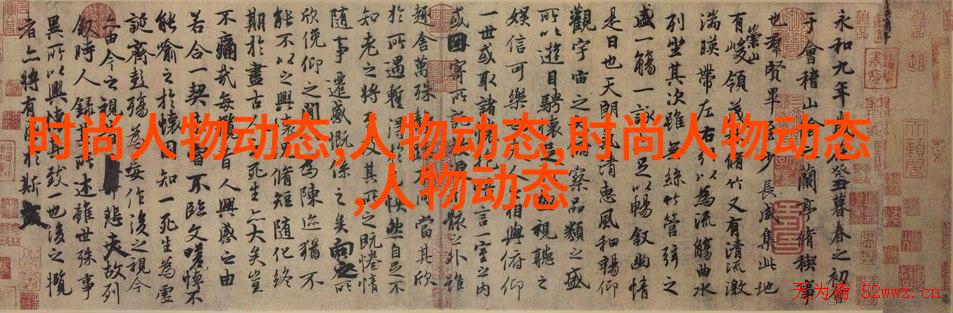 时尚人物动态,人物动态,时尚人物动态
,人物动态
永和九年癸丑暮春之初會
于會稽山蘭亭脩稧事
也群賢畢少長咸集此地
有崇山峻領茂脩竹又有清流激
湍暎帶左右以為流觴曲水
列坐其次雖無絲竹管弦之
盛一觴一詠足以暢敘幽情
是日也天朗清惠風和暢仰
觀宇宙之察品類之盛
所以遊目騁懷足視聽之
娛信可樂人相與俯仰
一世或取諸言一室之內
或因寄所骸之外雖
趣舍萬殊當其欣
於所遇蹔得然自足不
知老之將及其所之既惓情
隨事遷感慨係之矣向之所
欣俛仰之間為陳迹猶不
能不以之興脩短隨化終
期於盡古死生亦大矣豈
不痛哉每攬昔人興感之由
若合一契嘗不臨文嗟悼不
能喻之於懷固知一死生為虛
誕齊彭殤為妄作後之視今
由今之視悲夫故列
敘時人錄其所述雖世殊事
異所以興其致一也後之攬
者亦將有於斯文
无为斋 52wwz.cn